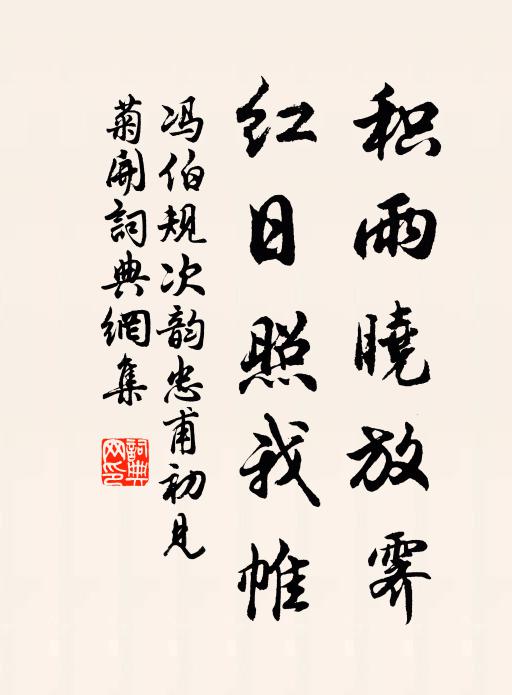 积雨晓放霁
红日照我帷
冯伯规次韵忠甫初见
菊开词典网集
词典网印